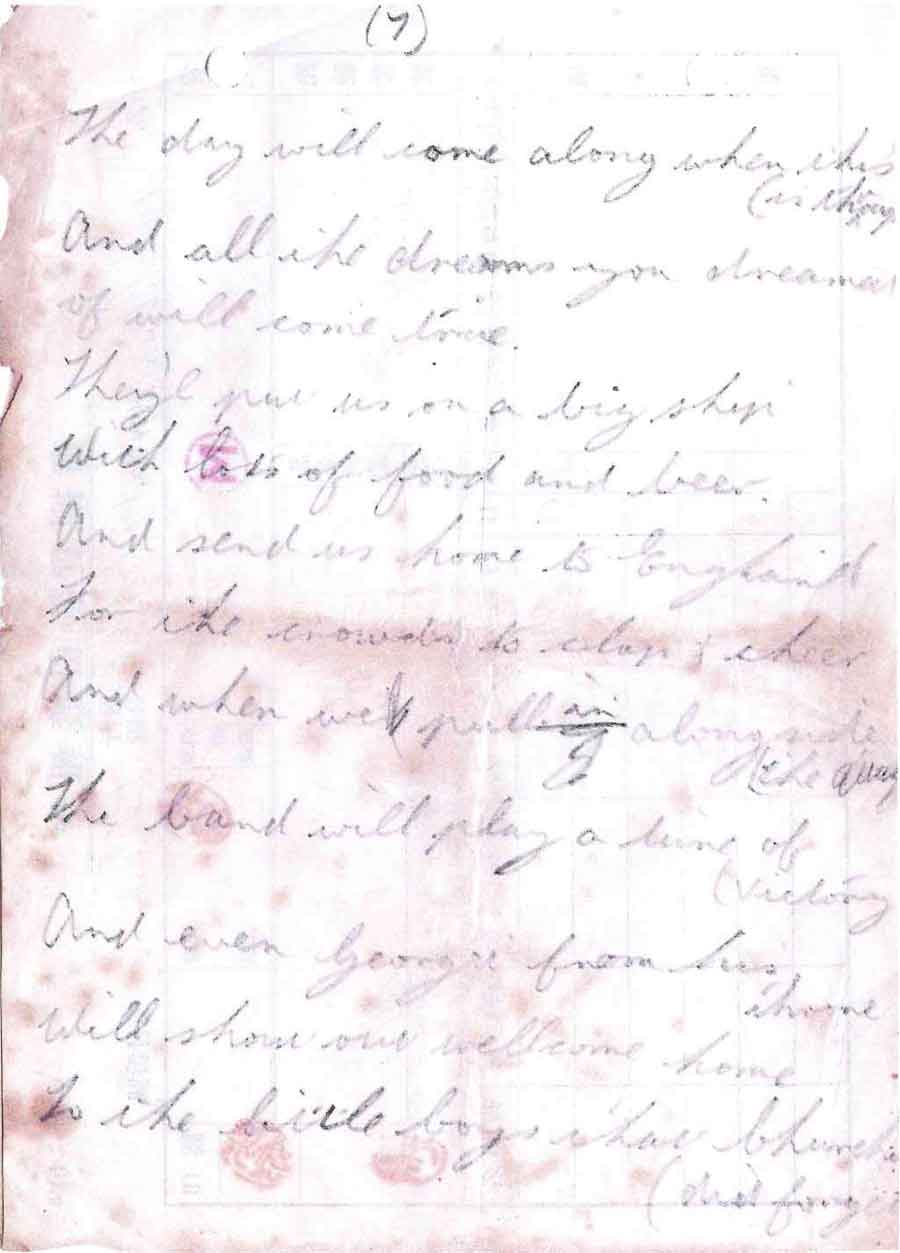 (7)
The day will come along when this
(is through
And all the dreams you dreamed
of will come true.
They'l put us on a big ship
With lots of food and beer.
And send us home to England
For the crowds to clap & cheer
And when we pull in alongside
(the quay
The band will play a tune of
(Victory
And even Georgie from his
throne
Will shout our wellcome home
To the little boys that Churchi
(did forget